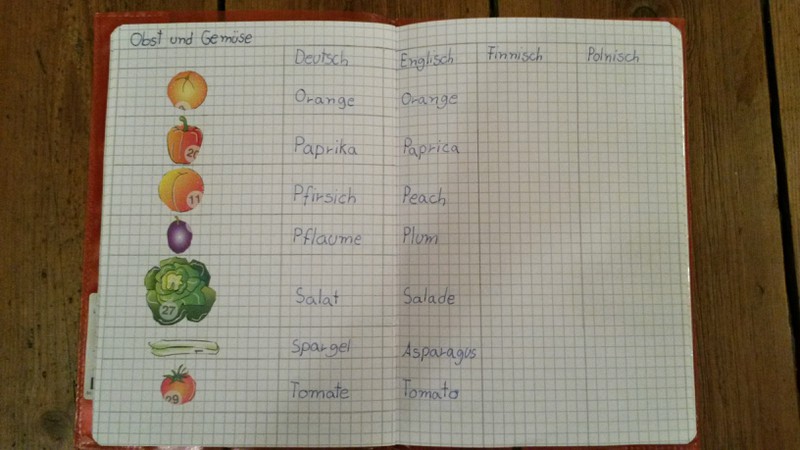 Obst und Gemüse
Deutsch Englisch Finnisch Polnisch
Orange Orange
Paprika Paprica
11
Pfirsich Peach
Pflaume Plum
27
Salat Salade
Spargel Asparagus
Tomate Tomato